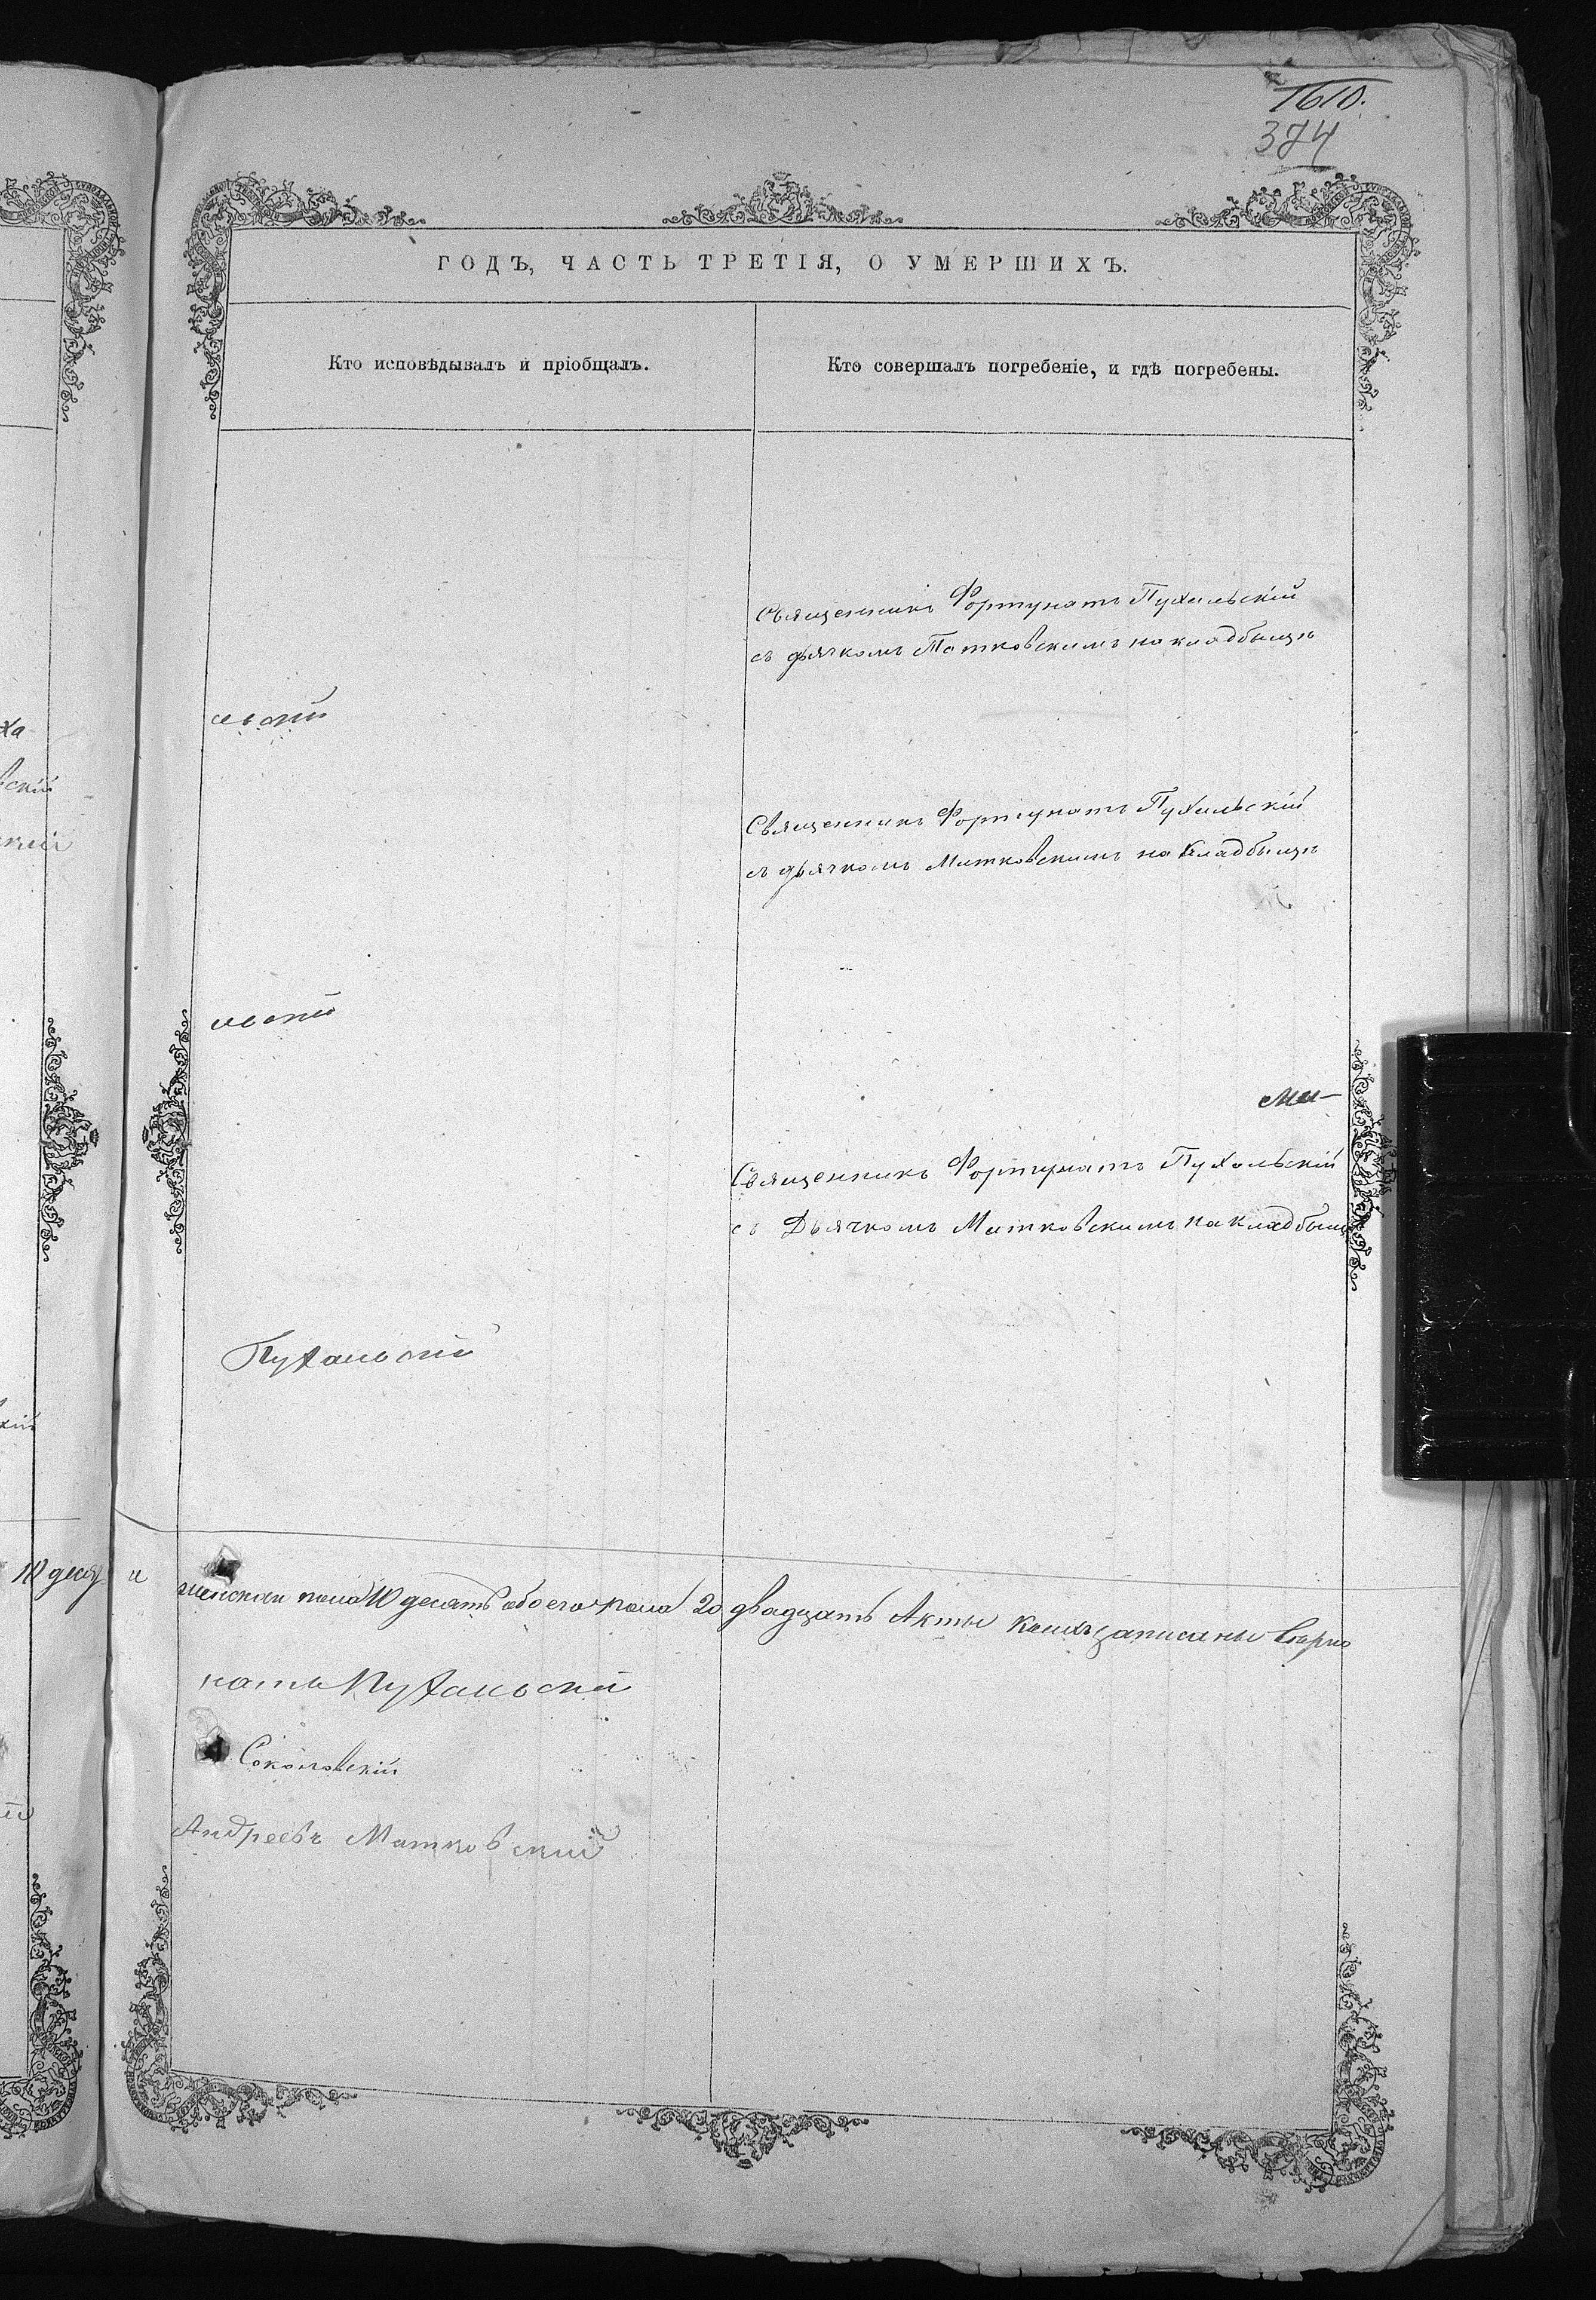 1610.
374
ГОДЪ, ЧАСТЬ ТРЕТІЯ, О УМЕРШИХЪ.
Кто исповѣдывалъ и пріобщалъ.
Кто совершалъ погребеніе, и гдѣ погребены.
Священникъ Фортунатъ Пухальскій
съ дьячкомъ Матковскимъ на кладбищѣ
льскій
Священникъ Фортунатъ Пухальскій
съ дьячкомъ Матковскимъ на Кладбищѣ
льскій
Священникъ Фортунатъ Пухальскій
съ Дьячкомъ Матковскимъ на кладбищѣ
Пухальскій
10 деся и женска пола 10 десять обоего пола 20 двадцать Акты записаны вѣрно
натъ Пухальскій
Соколовскій
Андреевъ Матковскій
ха
вскій
скій
кій